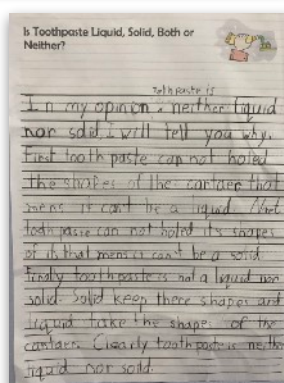 Is Toothpaste Liquid, Solid, Both or
Neither?
toothpaste is
In my opinion neither liquid
nor solid. I will tell you why.
First tooth paste can not holed
the shapes of the cantaer that
mens it can't be a liquid. Next
tooth paste can not holed it's shapes
of it's that mens it can't be a solid.
Finaly tooth paste is not a liquid nor
solid. Solid keep there shapes and
liquid take the shapes of the
cantaer. Clearly tooth paste is neither
liquid nor soild.